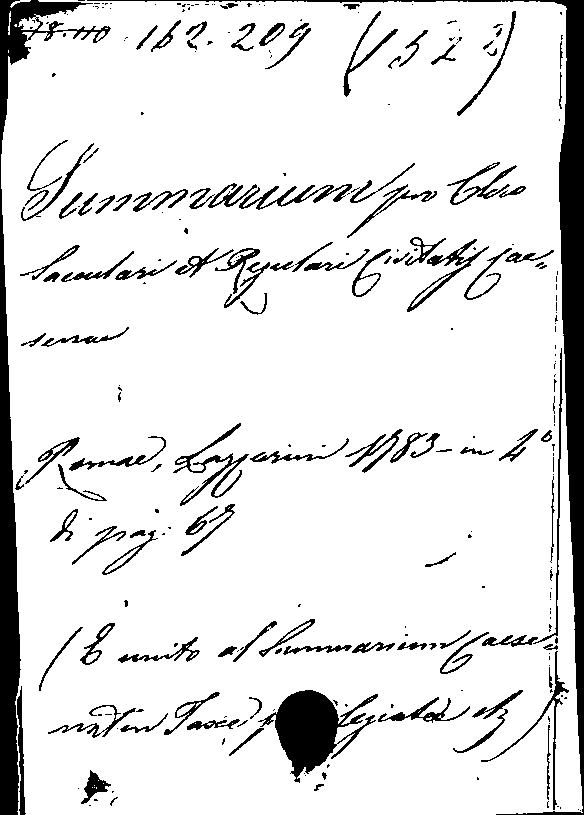 18.110 162.209 (1522)
Summarium pro Clero
Saeculari et Regulari Civitatis Cae=
senae
Romae, Lazzarini 1783 - in 4°
di pag. 67
(È unito al Summarium Caese=
naten Taxae legiatae etz)